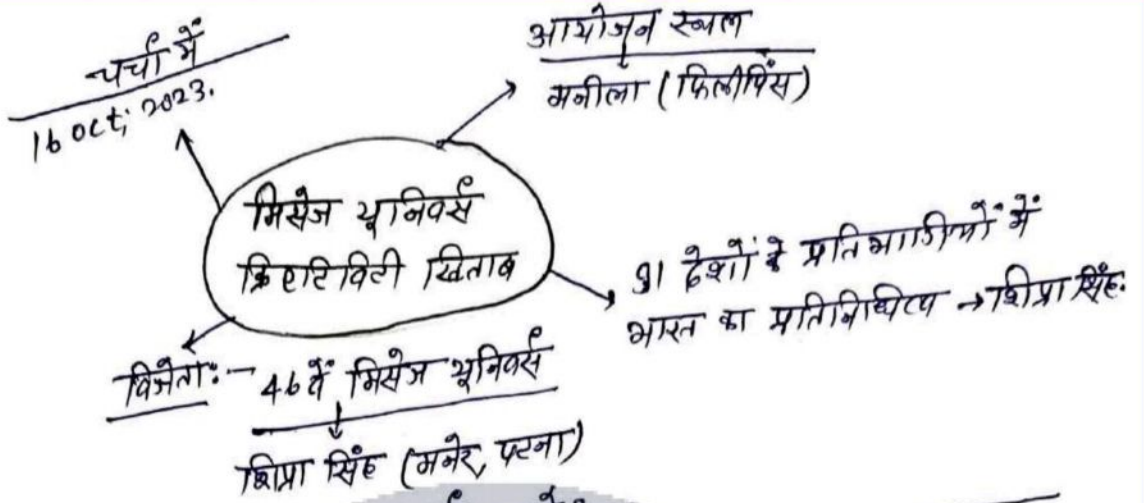 चर्चा में
16 oct; 2023.
आयोजन स्थल
मनीला (फिलीपिंस)
मिसेज यूनिवर्स
क्रिएटिविटी खिताब
91 देशों के प्रतिभागियों में
भारत का प्रतिनिधित्व → शिप्रा सिंह.
विजेता:- 46वें मिसेज यूनिवर्स
शिप्रा सिंह (मनेर, पटना)